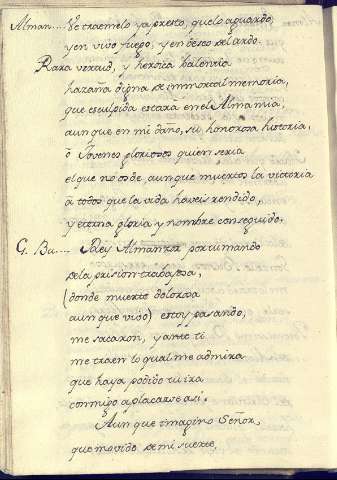 Alman.... Ve traemelo ya presto, que lo aguardo,
y en vivo fuego, y en deseo de l ardo.
Rara vertud, y heroica balentia
hazaña digna de inmortal memoria,
que esculpida estará en el Alma mia,
aunque en mi daño, su honorosa historia,
ò Jovenes gloriosos quien seria
el que no os de aunque muertos la victoria
à todos que la vida haveis rendido,
y eterna gloria y nombre conseguido.
G. Bu.... Rey Almanzor por tu mando
de la prision trabajosa,
(donde muerte dolorosa
aunque vivo) estoy pasando,
me sacaron, y ante ti
me traen lo qual me admira
que haya podido tu ira
conmigo aplacarse asi.
Aunque imagino Señor,
que movido de mi suerte,